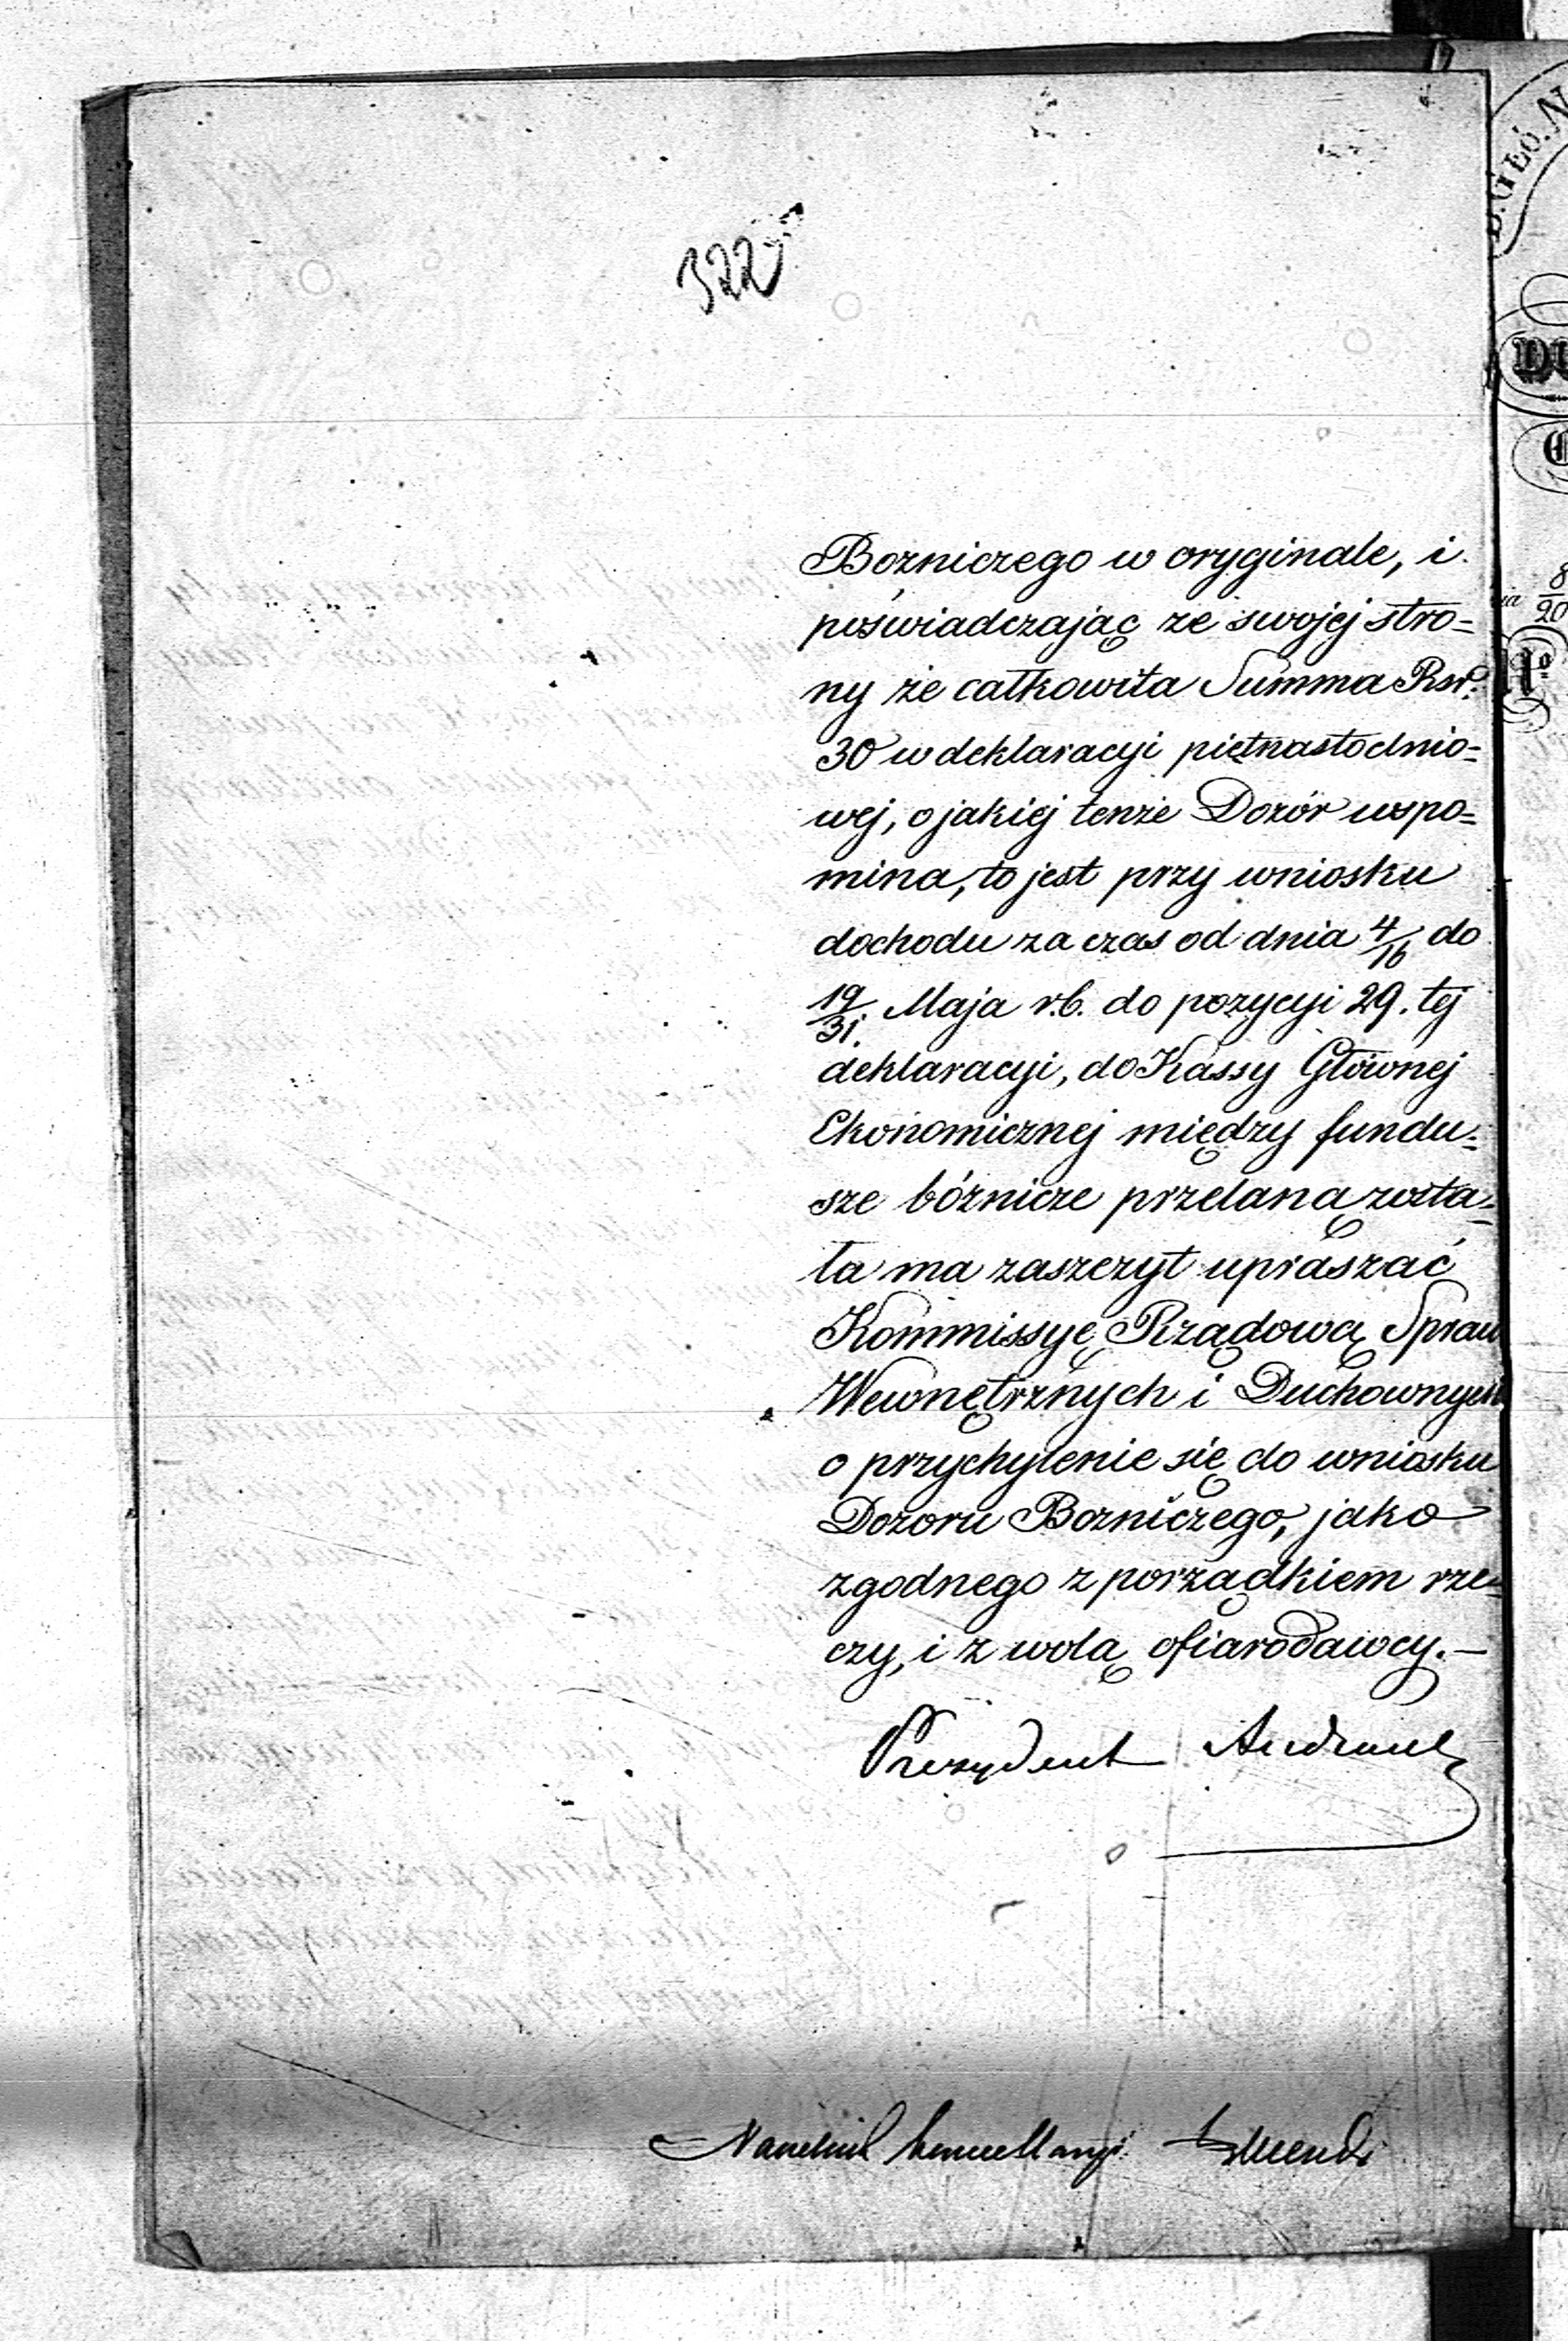 322
Bozniczego w oryginale, i
poświadczając ze swojej stro=
ny że całkowita Summa Rsr.
30 w deklaracyi piętnastodnio=
wej, o jakiej tenże Dozór wspo=
mina, to jest przy wniosku
dochodu za czas od dnia 4/16 do
19/31. Maja r.b. do pozycyi 29. tej
deklaracyi, do Kassy Głównej
Ekonomicznej między fundu=
sze bóżnicze przelaną zosta=
ła ma zaszczyt upraszać
Kommissyę Rządową Spraw
Wewnętrznych i Duchownych
o przychylenie się do wniosku
Dozoru Bozniczego, jako
zgodnego z porządkiem rze=
czy, i z wolą ofiarodawcy.—
Prezydent
Naczelnik Kancellaryi
8/20
No